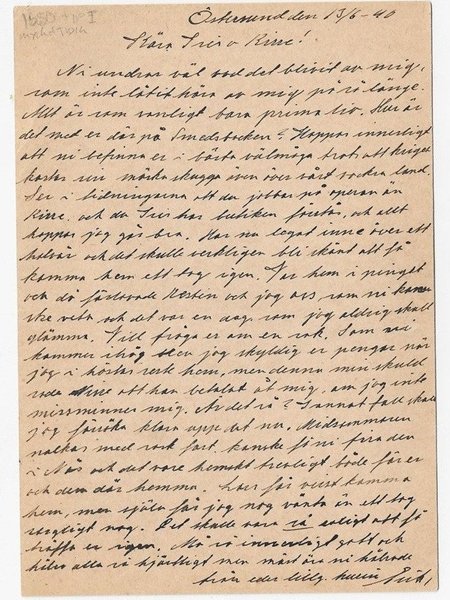 Östersund den 13/6-40
Kära Siri o Kirre!
Ni undrar väl vad det blivit av mig,
som inte låtit höra av mig på så länge.
Allt är som vanligt bara prima liv. Hur är
det med er där på Smedsbacken? Hoppas innerligt
att ni befinna er i bästa välmåga trots att kriget
kastar sin mörka skugga även över vårt vackra land.
Ser i tidningarna att du jobbar på operan än
Kirre, och du Siri har butiken förstås, och allt
hoppas jag går bra. Har nu legat inne över ett
halvår och det skulle verkligen bli skönt att få
komma hem ett tag igen. Var hem i pingst
och då förlovade Kerstin och jag oss som ni kanske
veta och det var en dag som jag aldrig skall
glömma. Vill fråga er om en sak. Som ni
kommer ihåg blev jag skyldig er pengar när
jag i höstas reste hem, men denna min skuld
Kirre att han betalat åt mig, om jag inte
missminner mig. Är det så? I annat fall skall
jag försöka klara upp det nu. Midsommaren
nalkas med rask fart kanske få ni fira den
i Nås och det vore hemskt trevligt både för er
och dem där hemma. får visst komma
hem, men själv får jag nog vänta än ett tag
sorgligt nog. Det skulle vara så roligt att få
träffa er igen. Må så innerligt gott och
hälsa alla så hjärtligt men mest äro ni hälsade
från eder